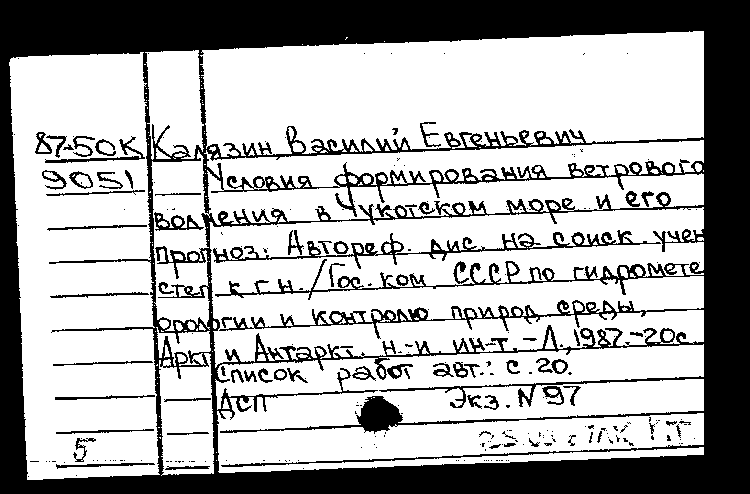 87-50К Калязин, Василий Евгеньевич
9051 Условия формирования ветрового
волнения в Чукотском море и его
прогноз: Автореф. дис. на соиск. учен
степ к.г.н. / Гос. ком. СССР по гидромете
орологии и контролю природ среды,
Аркт. и Антаркт. н.-и. ин-т. - Л., 1987. - 20с
Список работ авт.: с. 20.
ДСП Экз. N 97
5